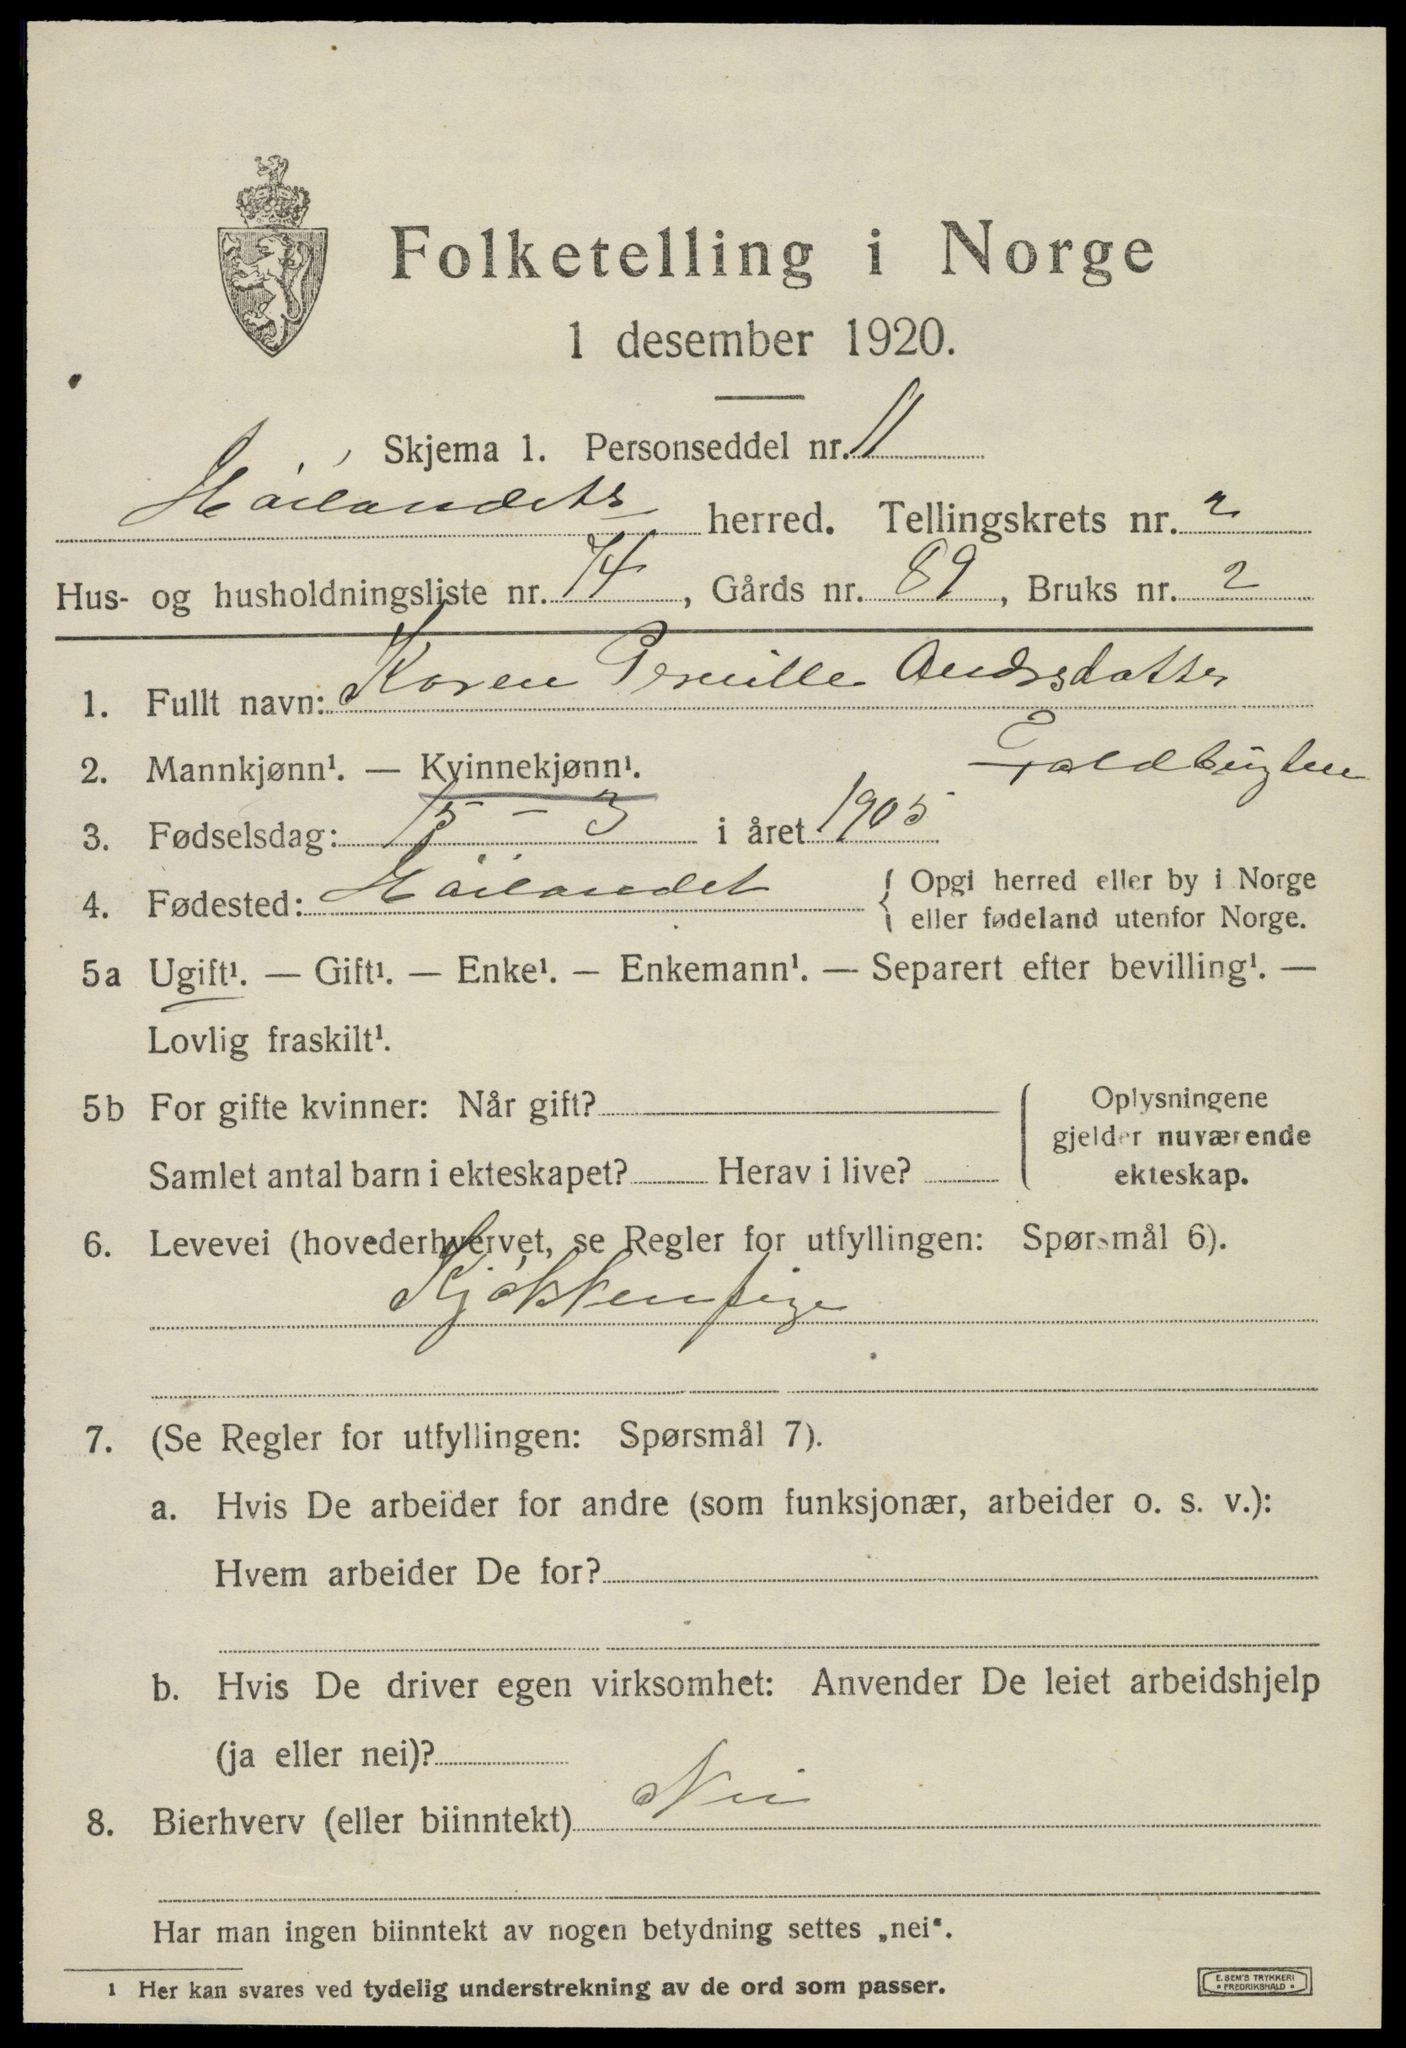 Folketelling i Norge
1 desember 1920.
Skjema 1. Personseddel nr. 11
Høilandets herred. Tellingskrets nr. 2
Hus- og husholdningsliste nr. 74, Gårds nr. 89, Bruks nr. 2
1. Fullt navn: Karen Pernille Andrsdatter
2. Mannkjønn¹. — Kvinnekjønn¹.
3. Fødselsdag: 15 - 3 i året 1905
4. Fødested: Høilandet { Opgi herred eller by i Norge
eller fødeland utenfor Norge.
5a Ugift¹. — Gift¹. — Enke¹. — Enkemann¹. — Separert efter bevilling¹. —
Lovlig fraskilt¹.
5b For gifte kvinner: Når gift? ( Oplysningene
gjelder nuværende
Samlet antal barn i ekteskapet? Herav i live? ekteskap.
6. Levevei (hovederhvervet, se Regler for utfyllingen: Spørsmål 6).
Kjøkkenpige
7. (Se Regler for utfyllingen: Spørsmål 7).
a. Hvis De arbeider for andre (som funksjonær, arbeider o. s. v.):
Hvem arbeider De for?
b. Hvis De driver egen virksomhet: Anvender De leiet arbeidshjelp
(ja eller nei)?
8. Bierhverv (eller biinntekt) Nei
Har man ingen biinntekt av nogen betydning settes „nei“.
1 Her kan svares ved tydelig understrekning av de ord som passer.
E. SEM'S TRYKKERI
• FREDRIKSHALD •